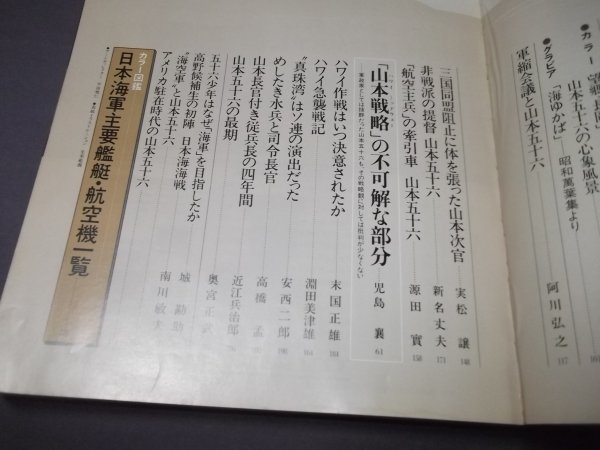 ●カラー
山本五十六の心象風景
●グラビア 「海ゆかば」 昭和萬葉集より
軍縮会議と山本五十六 阿川弘之 117
三国同盟阻止に体を張った山本次官 実松 譲 148
非戦派の提督 山本五十六 新名丈夫 171
「航空主兵」の牽引車 山本五十六 源田 實 158
「山本戦略」の不可解な部分 児島 襄 61
ハワイ作戦はいつ決意されたか 末国正雄
ハワイ急襲戦記 淵田美津雄
“真珠湾”はソ連の演出だった 安西二郎
めしたき水兵と司令長官 高橋 孟
山本長官付き従兵長の四年間 近江兵治郎
山本五十六の最期
五十六少年はなぜ「海軍」を目指したか 奥宮正武
高野候補生の初陣 日本海海戦
“海空軍”と山本五十六 城 勘助
アメリカ駐在時代の山本五十六 南川敏夫
カラー図鑑
日本海軍主要艦艇・航空機一覧